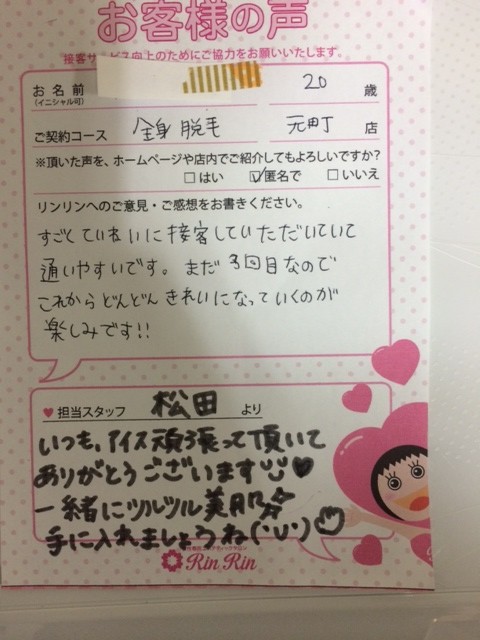 お客様の声
接客サービス向上のためにご協力をお願いいたします。
お名前 20 歳
(イニシャル可)
ご契約コース 全身脱毛 元町 店
※頂いた声を、ホームページや店内でご紹介してもよろしいですか?
□はい ☑匿名で □いいえ
リンリンへのご意見・ご感想をお書きください。
すごくていねいに接客していただいていて
通いやすいです。まだ3回目なので
これからどんどんきれいになっていくのが
楽しみです!!
♥担当スタッフ 松田 より
いつも、アイス頑張って頂いて
ありがとうございます♥
一緒にツルツル美肌
手に入れましょうね(˙ᴗ˙)
RinRin